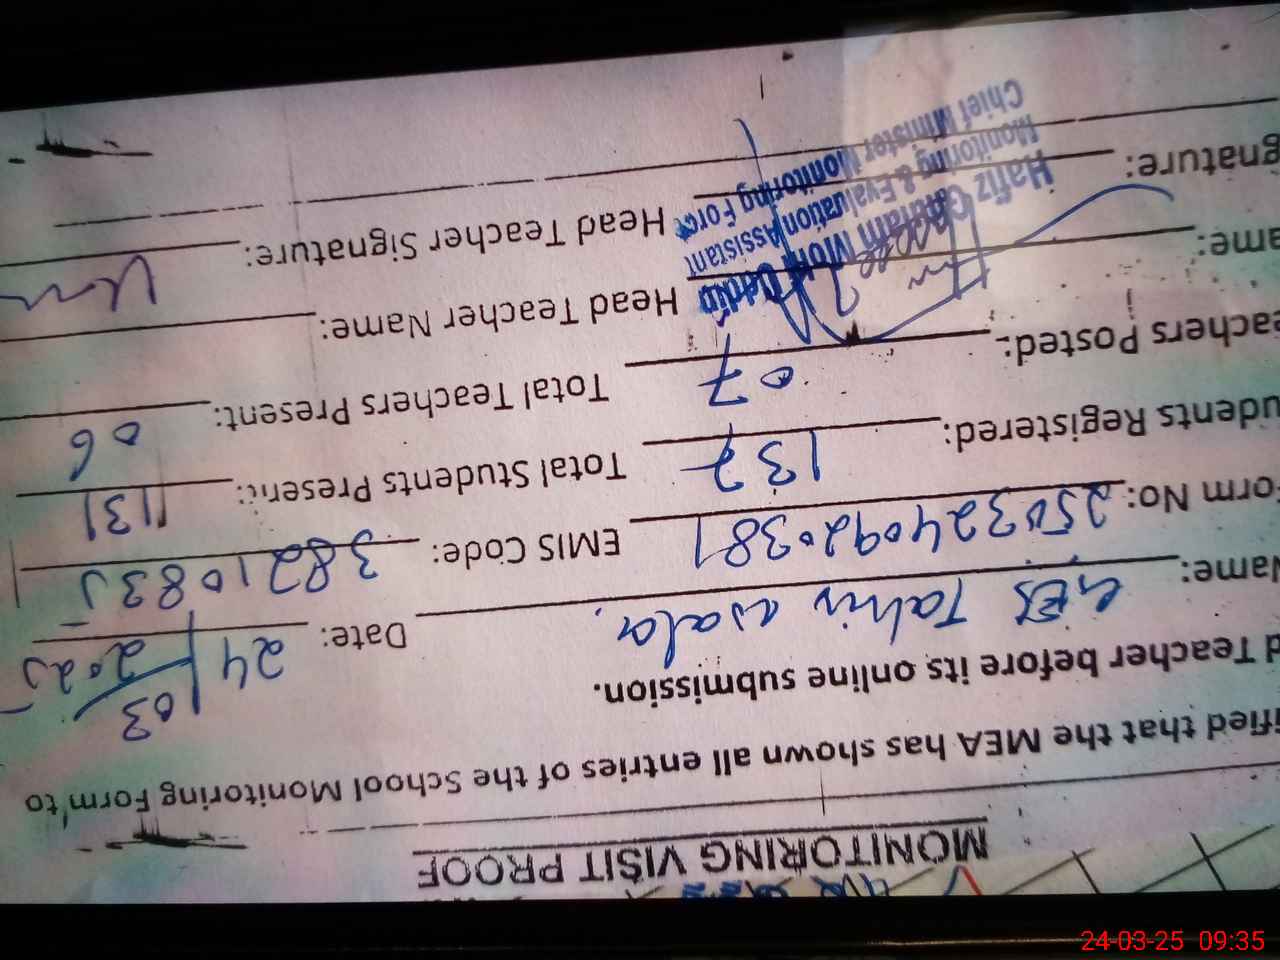 MONITORING VISIT PROOF
ified that the MEA has shown all entries of the School Monitoring Form to
d Teacher before its online submission.
Name: GES Tahir asala. Date: 24/03/2025
Form No: 2503240920381 EMIS Code: 38210835
udents Registered: 137 Total Students Present: 131
eachers Posted: 07 Total Teachers Present: 06
ame: Head Teacher Name:
gnature: Head Teacher Signature:
Hafiz Ghulam
Monitoring & Evaluation Assistant
Chief Minister Monitoring Force
24-03-25 09:35